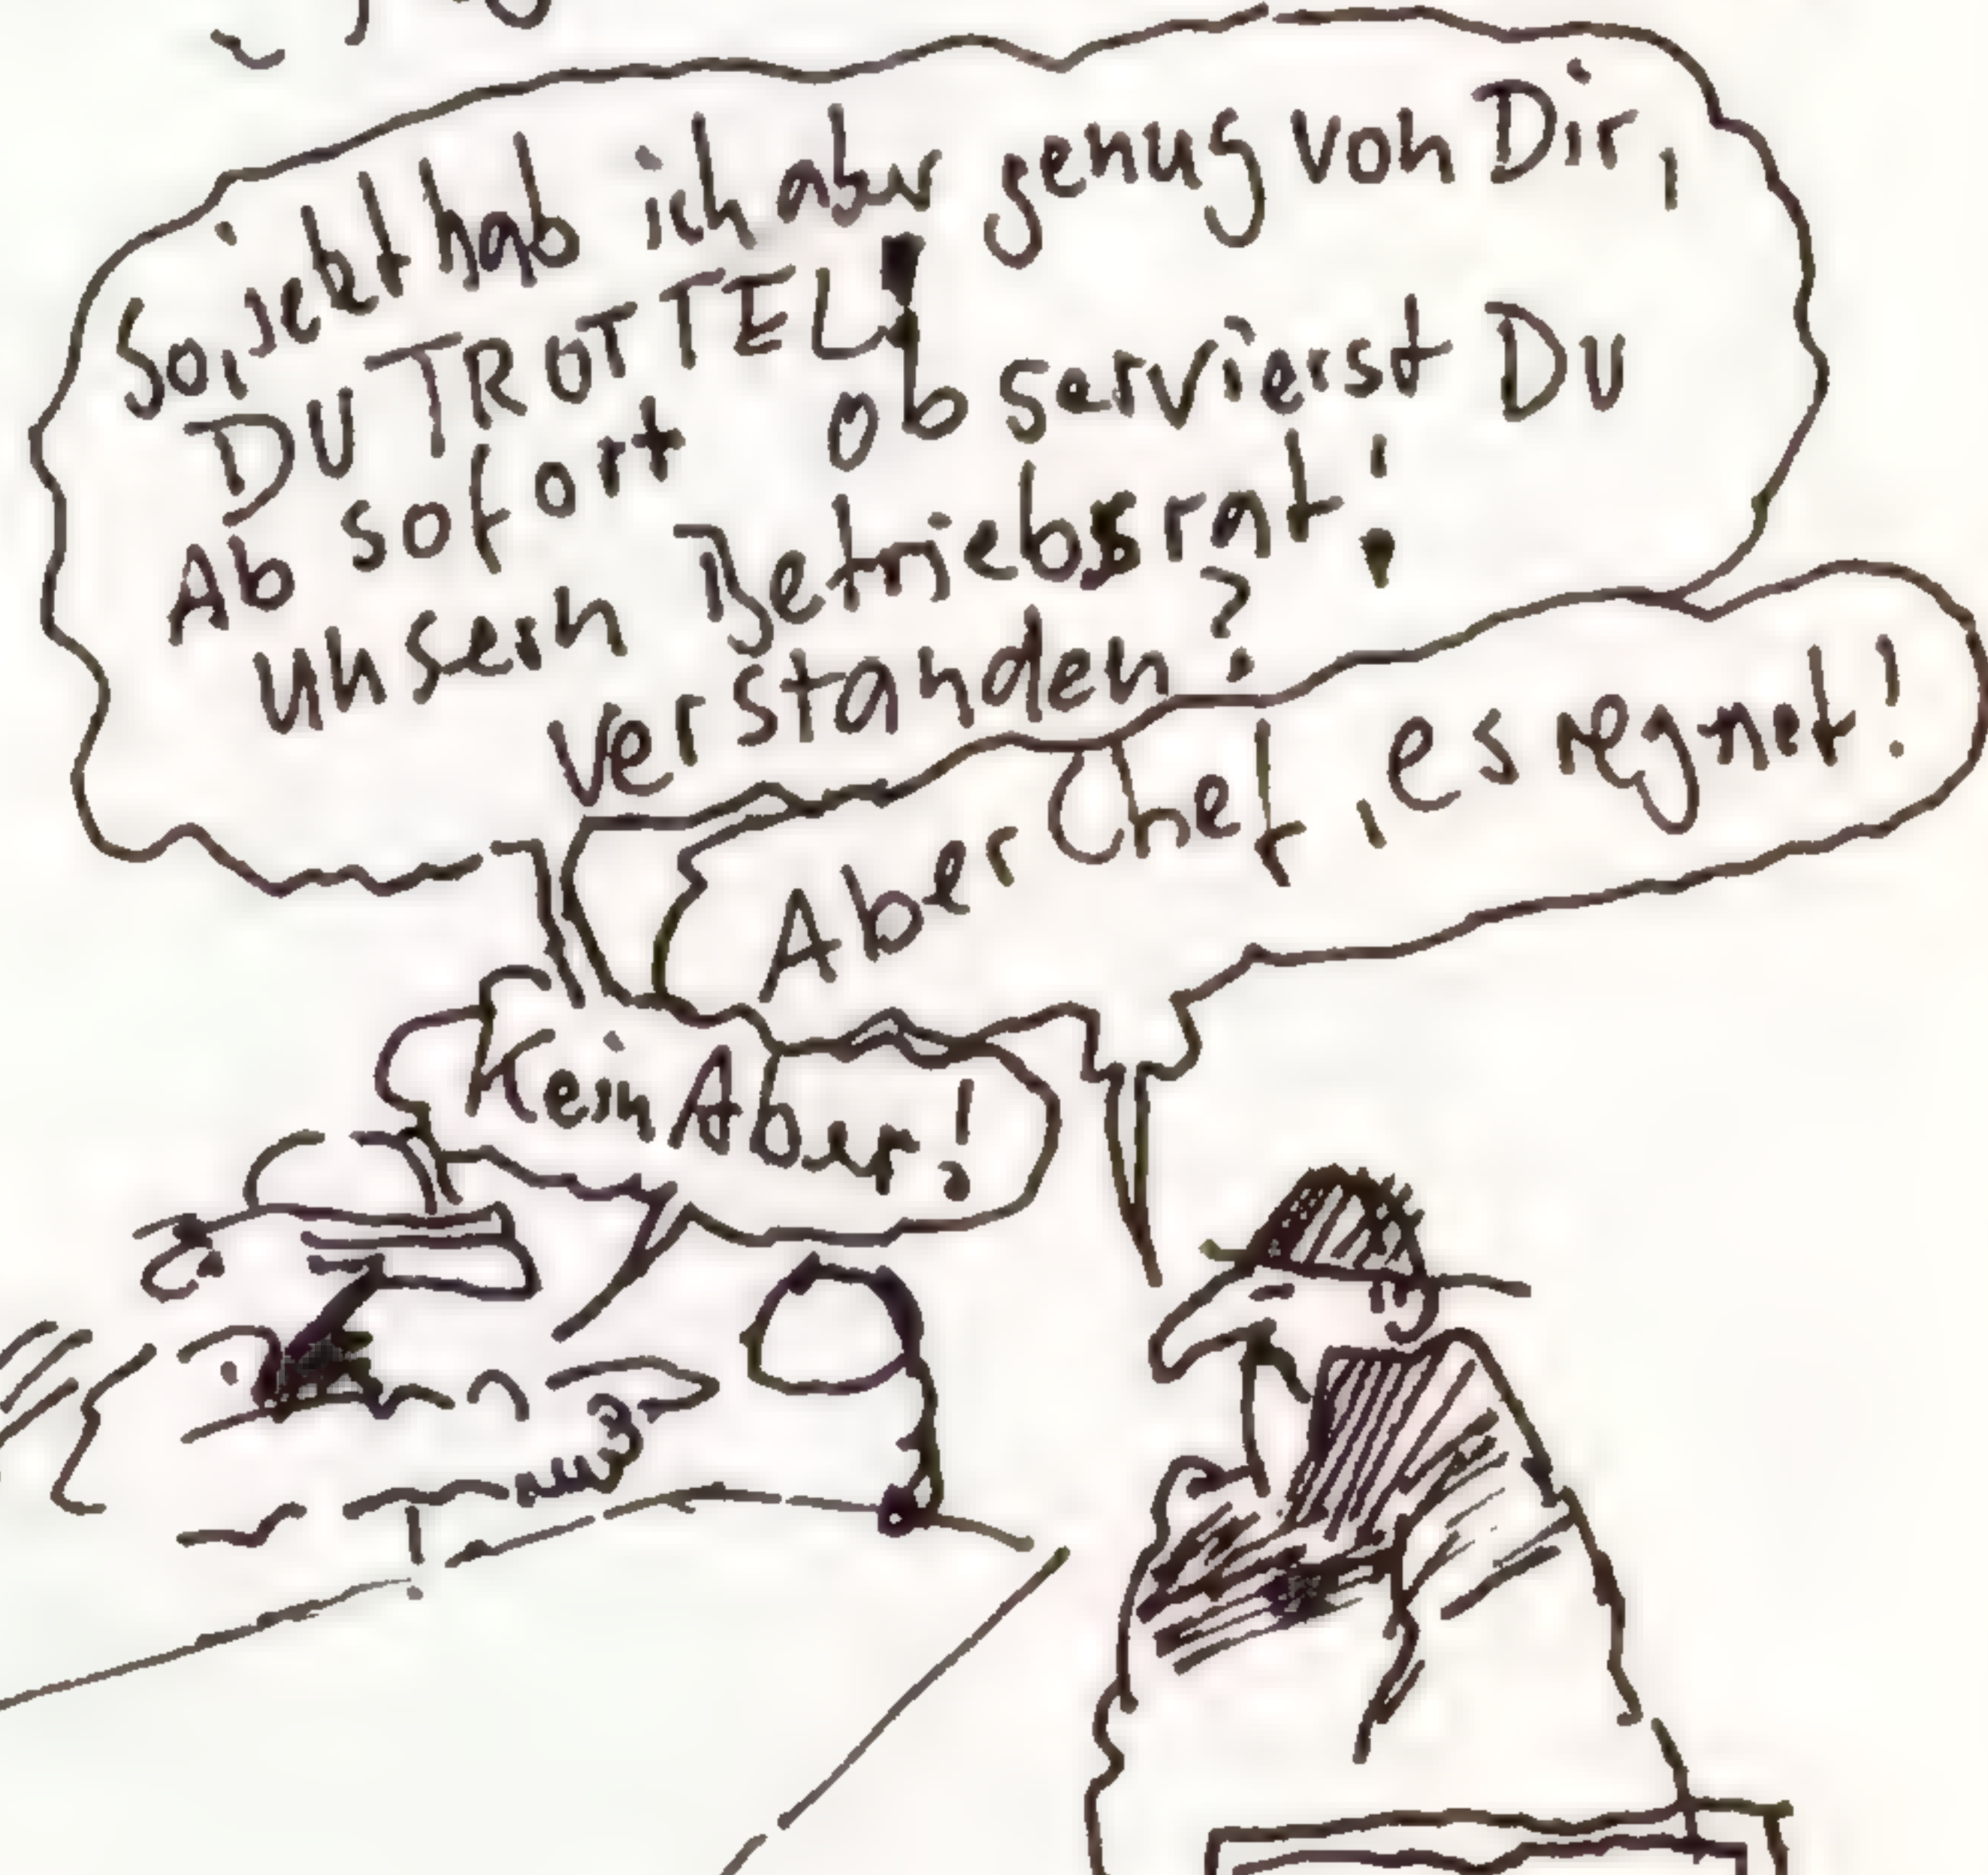 So, jetzt hab ich aber genug von Dir,
DU TROTTEL!
Ab sofort observierst DU
unsern Betriebsrat!
verstanden?
Aber Chef, es regnet!
Kein Aber!